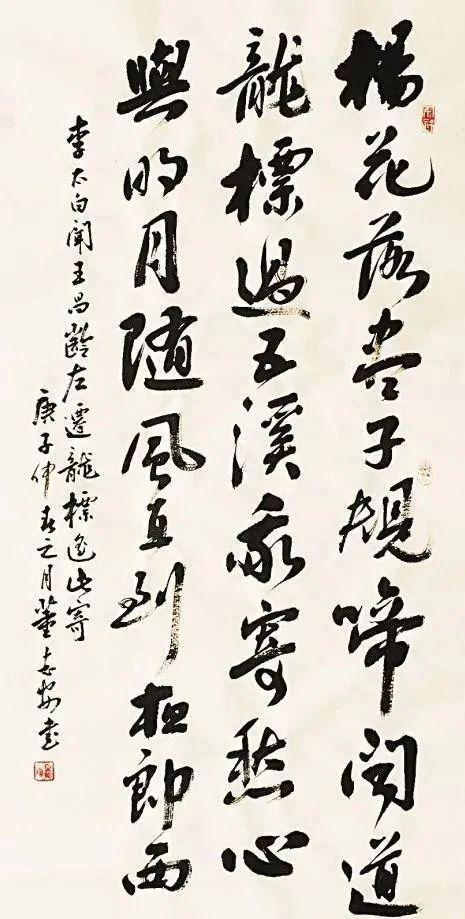 楊花落尽子規啼闻道
龍標過五溪我寄愁心
與明月随風直到夜郎西
李太白聞王昌齡左遷龍標遥此寄
庚子仲春之月董書